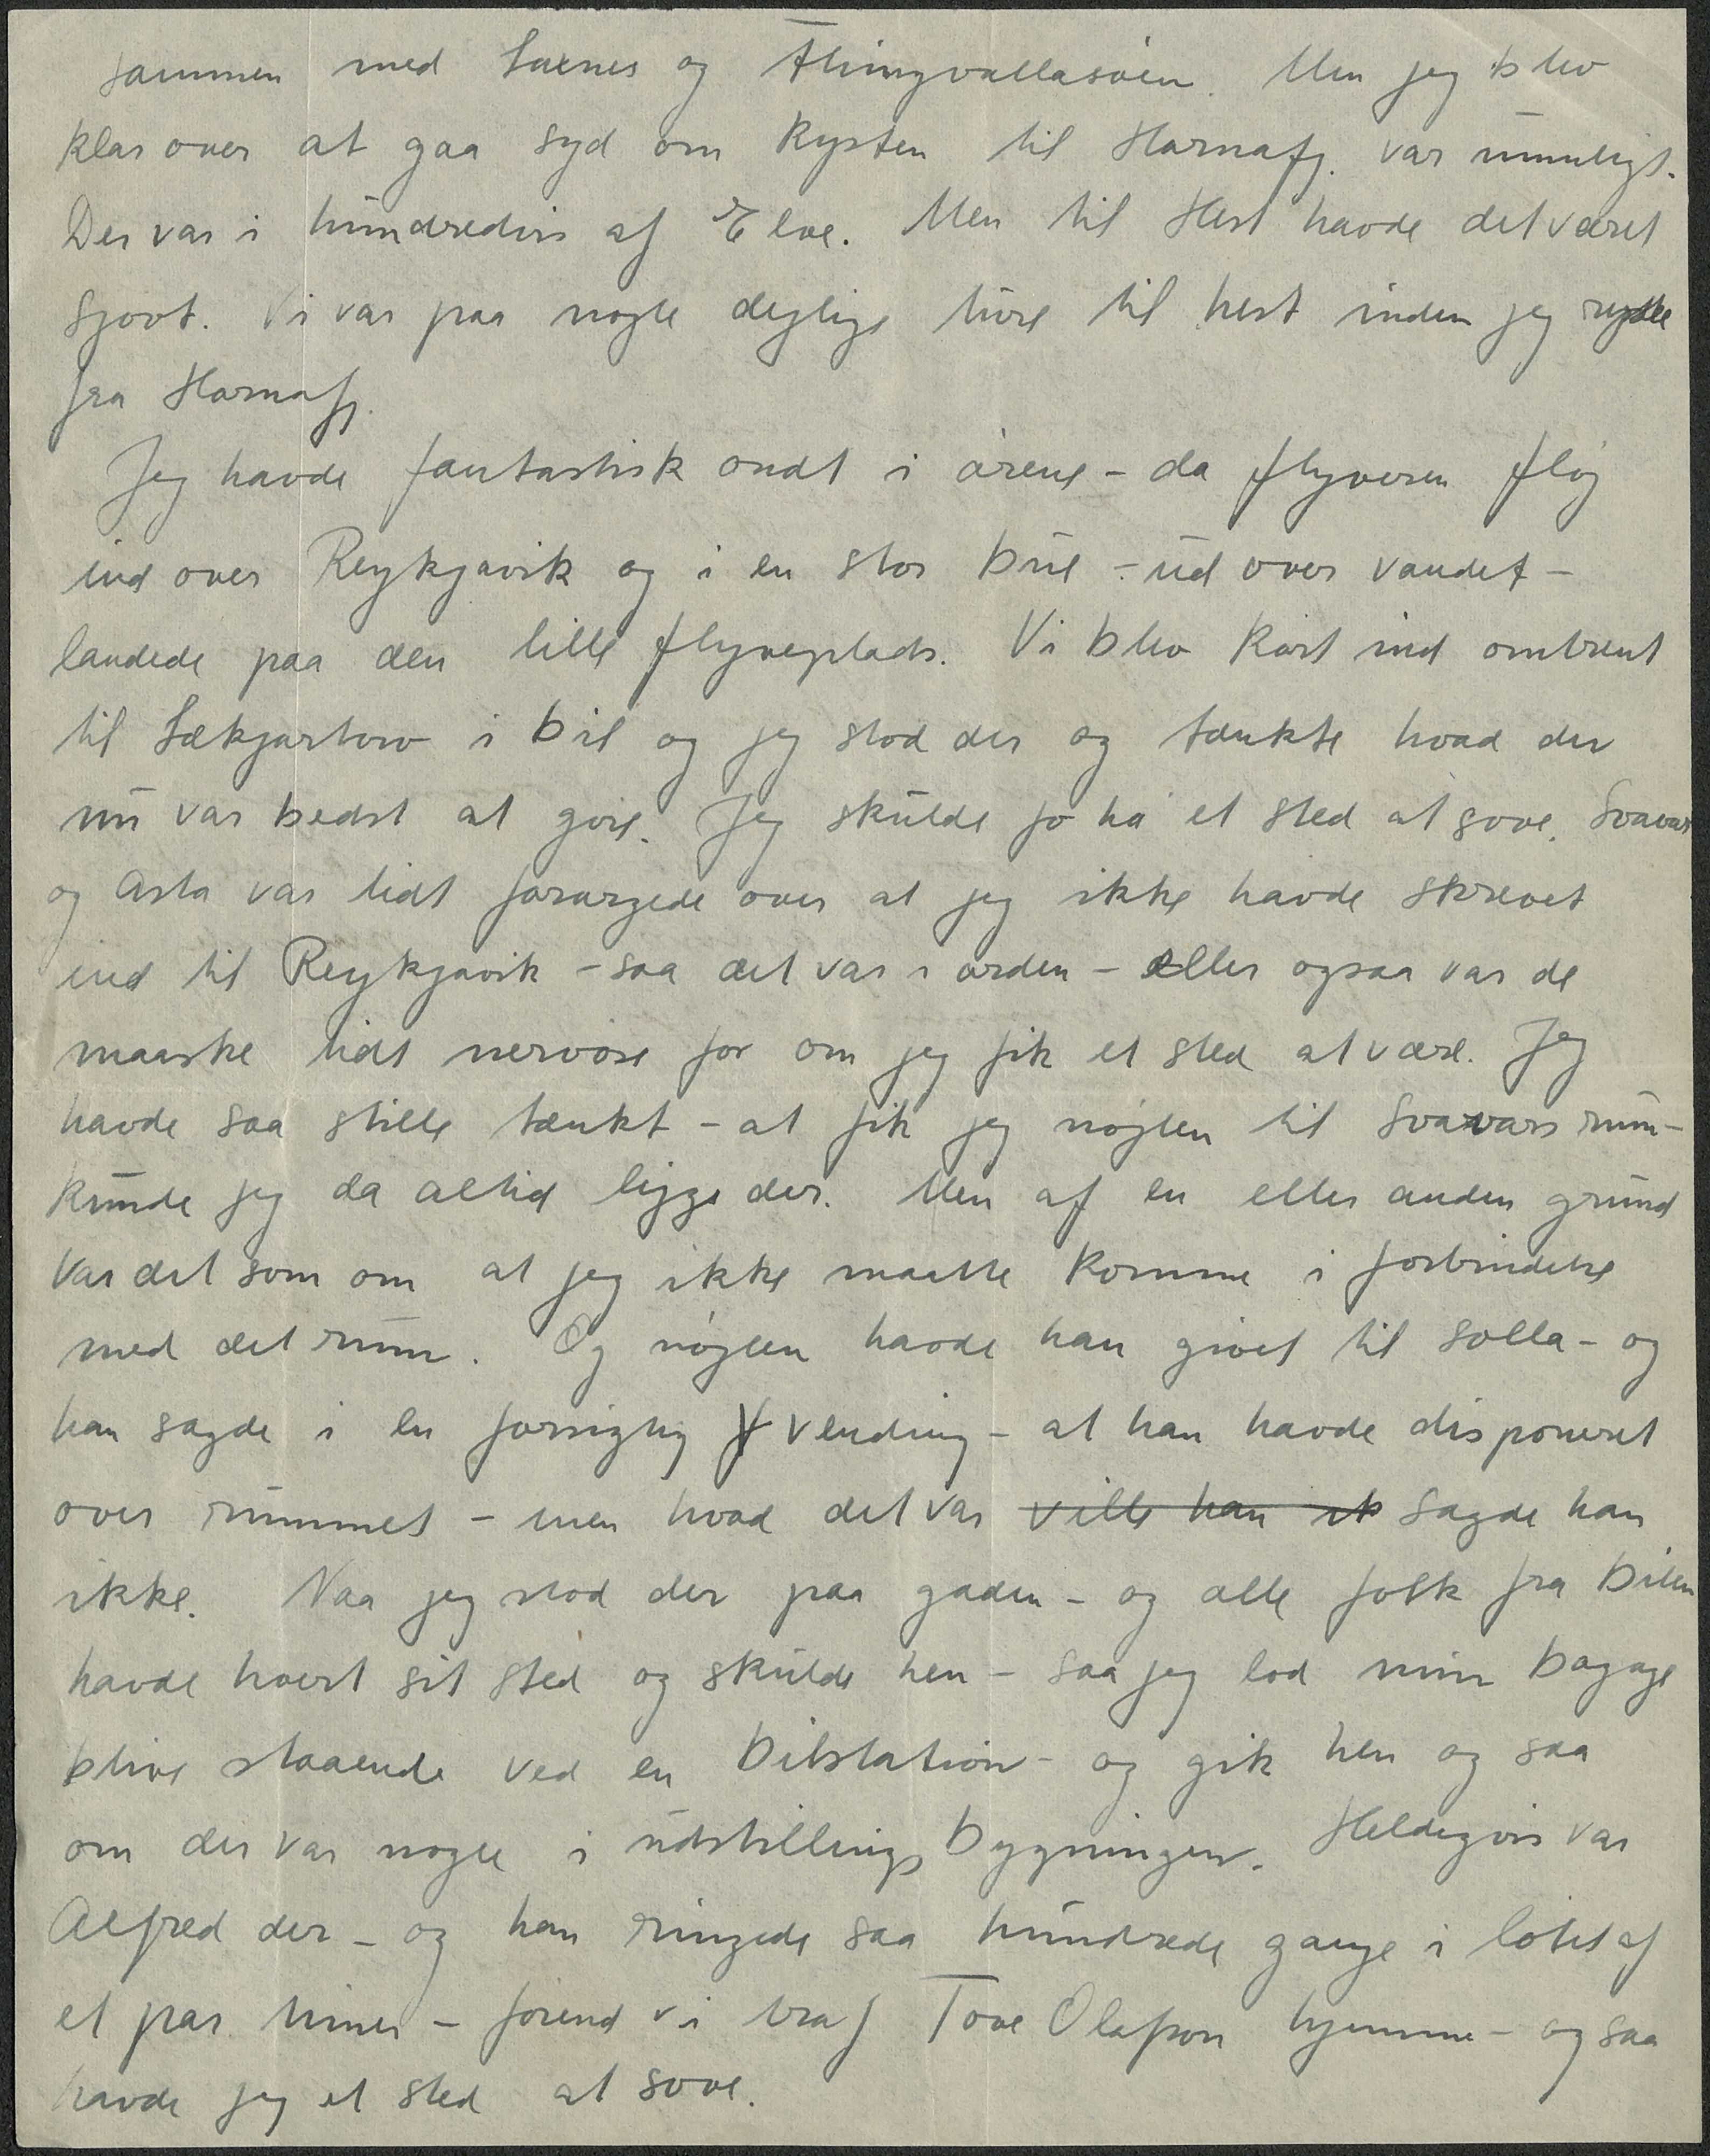 sammen med Laxnes og Thingvallasøen. Men jeg blev
klar over at gaa syd om Kysten til Hornafj. var umuligt.
Der var i hundredvis af Elve. Men til Hest havde det været
sjovt. Vi var paa nogle dejlige ture til hest inden jeg rejste
fra Hornafj.
Jeg havde fantastisk ondt i ørene - da flyveren fløj
ind over Reykjavik og i en stor bue - ud over vandet -
landede paa den lille flyveplads. Vi blev kørt ind omtrent
til Lækjartorv i bil og jeg stod der og tænkte hvad der
nu var bedst at gøre. Jeg skulde jo ha et sted at sove. Svavar
og Asta var lidt forargede over at jeg ikke havde skrevet
ind til Reykjavik - saa det var i orden - eller ogsaa var de
maaske lidt nervøse for om jeg fik et sted at være. Jeg
havde saa stille tænkt - at fik jeg nøglen til Svavars rum -
kunde jeg da altid ligge der. Men af en eller anden grund
var det som om at jeg ikke maatte komme i forbindelse
med det rum. Og nøglen havde han givet til Solla - og
han sagde i en forsigtig vending - at han havde disponeret
over rummet - men hvad det var ville han ik sagde han
ikke. Naa jeg stod der paa gaden - og alle folk fra bilen
havde hvert sit sted og skulde hen - saa jeg lod min bagage
blive staaende ved en bilstation - og gik hen og saa
om der var nogle i udstillings bygningen. Heldigvis var
Alfred der - og han ringede saa hundrede gange i løbet af
et par timer - førend vi traf Tove Olafson hjemme - og saa
havde jeg et sted at sove.